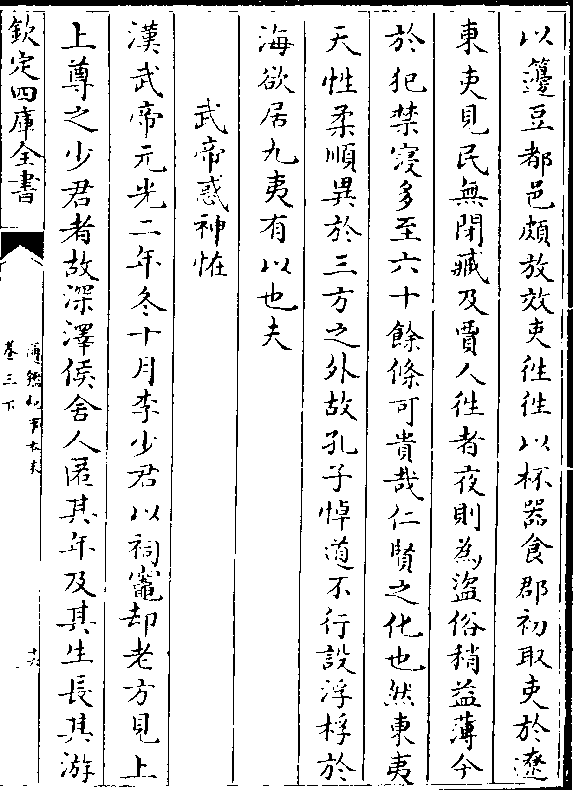 以籩豆都邑頗放效吏往往以杯器食郡初取吏於遼
東吏見民無閉藏及賈人往者夜則為盜俗稍益薄今
於犯禁寖多至六十餘條可貴哉仁賢之化也然東夷
天性柔順異於三方之外故孔子悼道不行設浮桴於
海欲居九夷有以也夫
武帝惑神怪
漢武帝元光二年冬十月李少君以祠竈却老方見上
上尊之少君者故深澤侯舍人匿其年及其生長其游
欽定四庫全書
通鑑紀事本末
卷三下